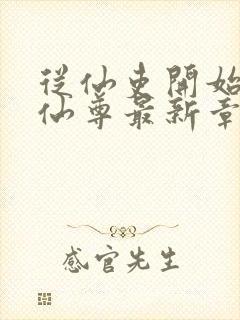 從仙吏開始
仙尊最新章
感官先生